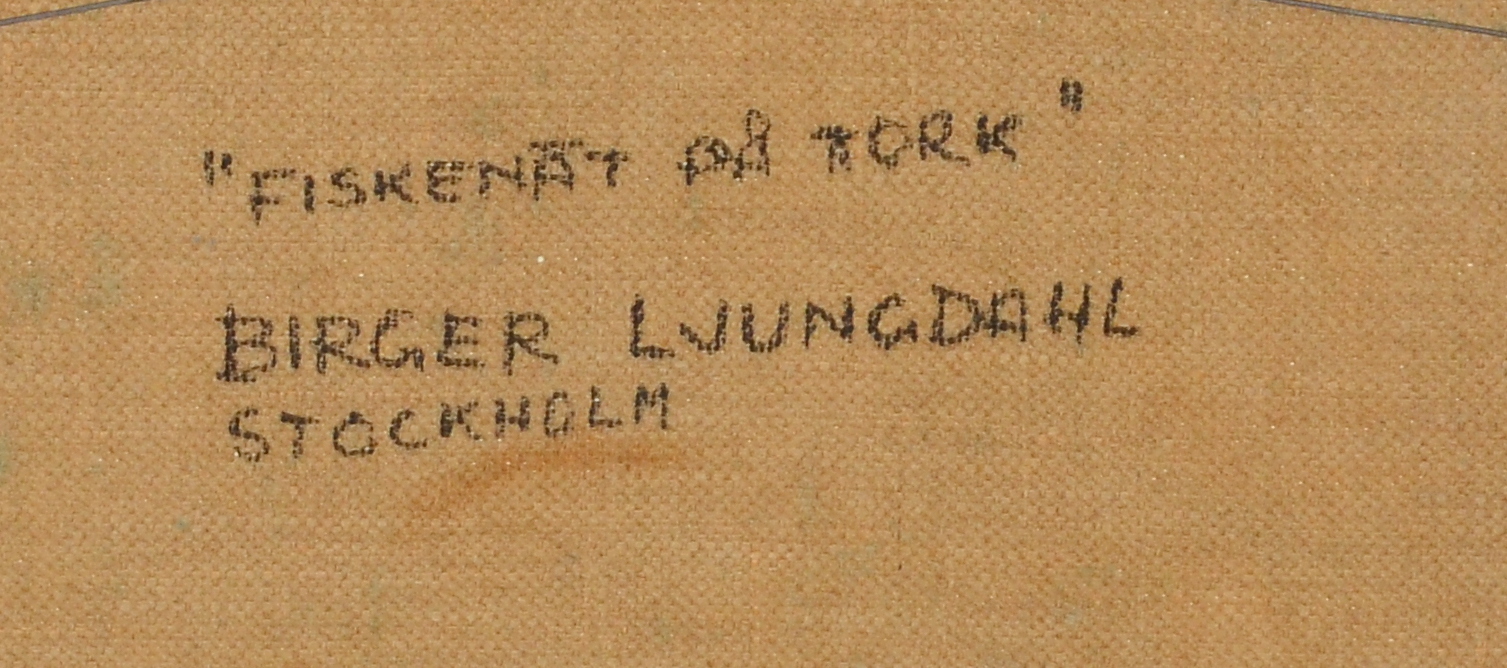 "FISKENÄT PÅ TORK"
BIRGER LJUNGDAHL
STOCKHOLM